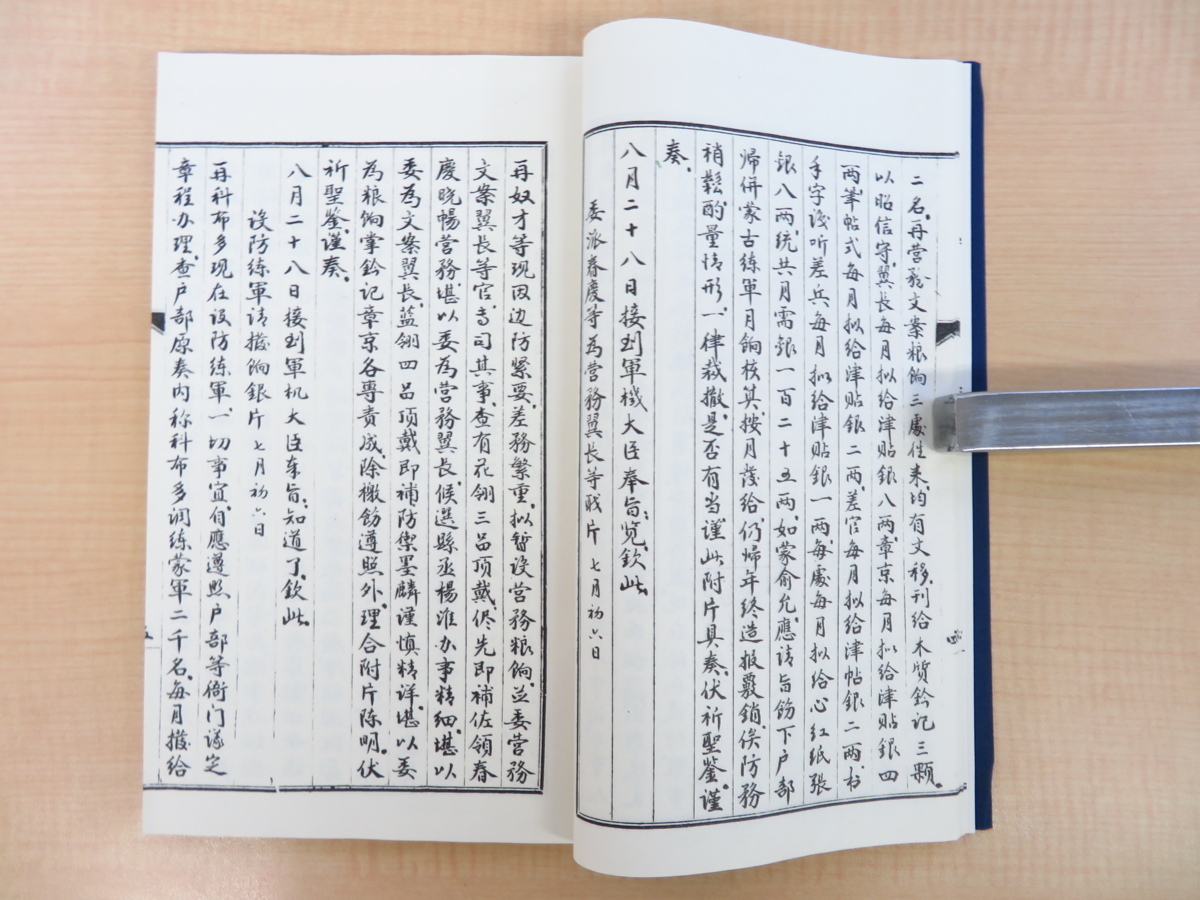 二名，再营務文案粮餉三處往来，均有文移，刊给木质鈐记三顆，
以昭信守。翼长每月拟给津贴銀八两，章京每月拟给津贴銀四
两，筆帖式每月拟给津贴銀二两，差官每月拟给津帖銀二两，书
手字识听差兵每月拟给津贴銀一两，每處每月拟给心红纸张
銀八两，统共月需銀一百二十五两，如蒙俞允，應请旨飭下户部
归併蒙古练軍月餉核算，按月發给，仍归年终造报覈銷，俟防務
稍鬆，酌量情形，一律裁撤，是否有当，谨此附片具奏，伏祈聖鉴，谨
奏。
八月二十八日接到軍機大臣奉旨：览，钦此。
委派春慶等為营務翼长等职片 七月初六日
再奴才等现因边防緊要，差務繁重，拟暂设营務粮餉，並委营務
文案翼长等官，专司其事，查有花翎三品顶戴侭先即補佐领春
慶晓暢营務，堪以委為营務翼长，候選縣丞楊淮办事精细，堪以
委為文案翼长，蓝翎四品顶戴即補防禦墨麟谨慎精详，堪以委
為粮餉掌鈐记章京，各專责成，除檄飭遵照外，理合附片陈明，伏
祈聖鉴，谨奏。
八月二十八日接到軍机大臣奉旨：知道了，钦此。
设防练軍请撥餉銀片 七月初六日
再科布多现在设防练軍，一切事宜，自應遵照户部等衙门议定
章程办理，查户部原奏内称科布多调练蒙軍二千名，每月撥给